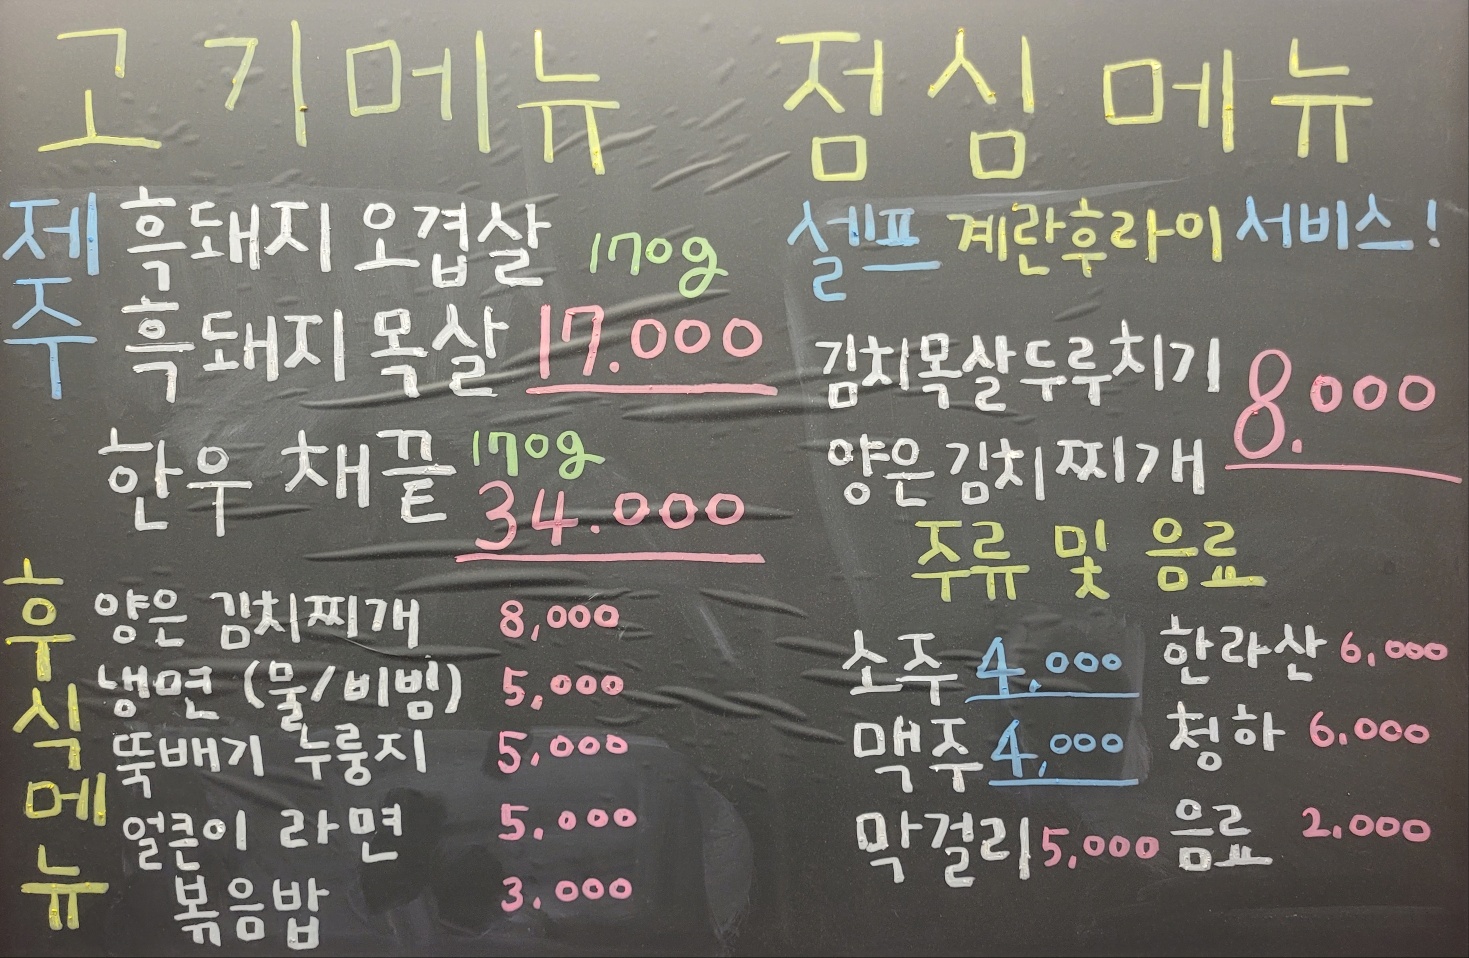 고기메뉴
제주
흑돼지 오겹살 170g
흑돼지 목살 17.000
한우 채끝 170g
34.000
후식메뉴
양은 김치찌개 8,000
냉면 (물/비빔) 5,000
뚝배기 누룽지 5,000
얼큰이 라면 5,000
볶음밥 3,000
점심메뉴
셀프 계란후라이 서비스!
김치목살두루치기
양은김치찌개
8.000
주류 및 음료
소주 4.000 한라산 6,000
맥주 4,000 청하 6.000
막걸리 5,000 음료 2,000